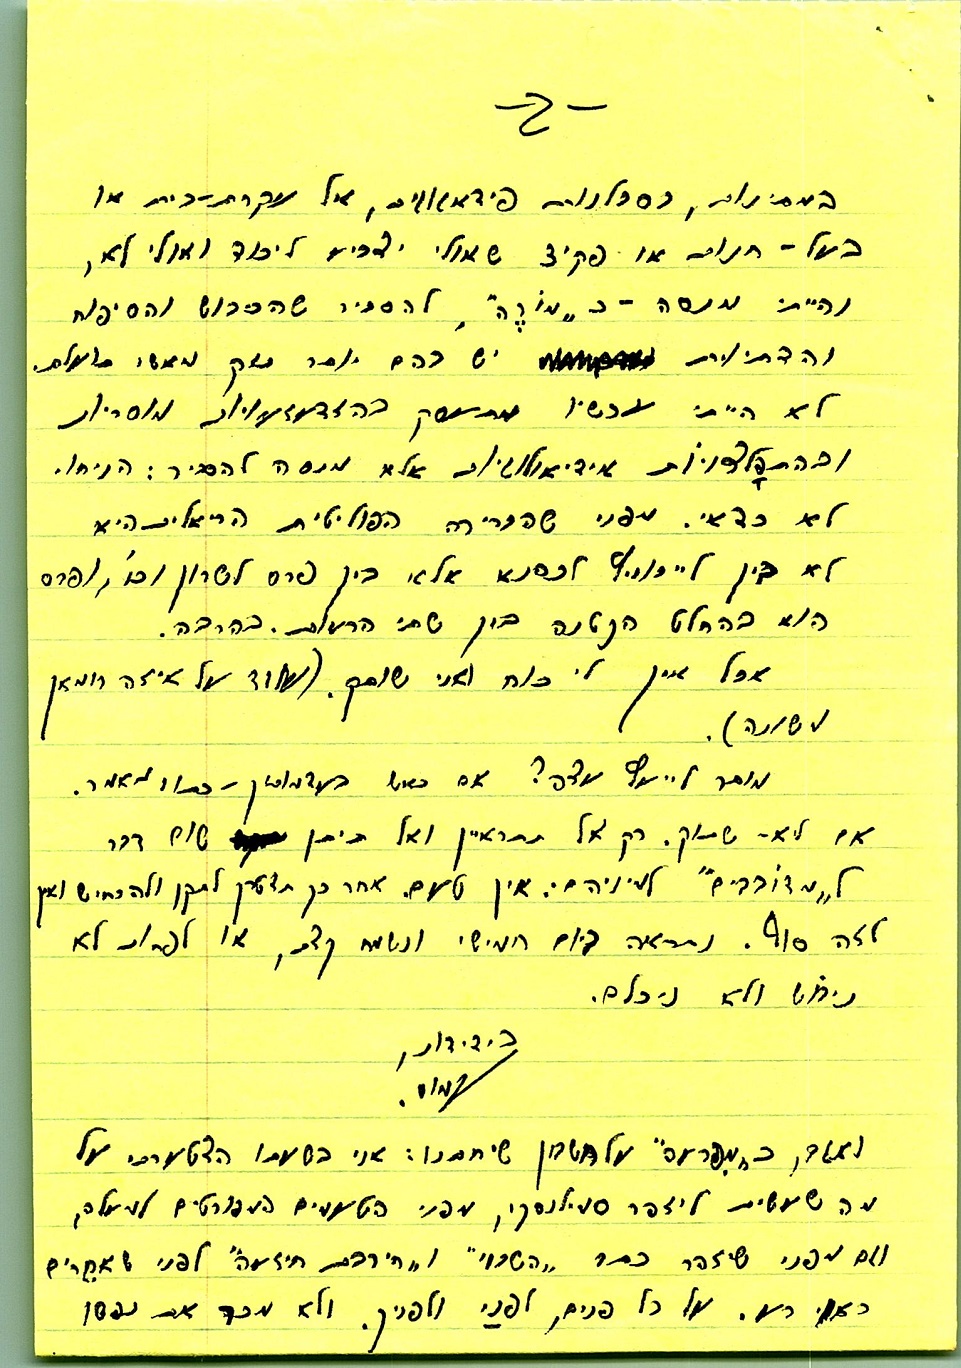 -ב-
במתינות, בסבלנות פידאגוגית, אל עקרת-בית או
בעל-חנות או פקיד שאולי יצביע ליכוד ואולי לא,
והייתי מנסה - כ„מוֹרֶה", להסביר שהכיבוש והסיפוח
והדתיות יש בהם יותר נזק מאשר תועלת.
לא הייתי עכשיו מתעסק בהזדעזעויות מוסריות
ובהתפלצויות אידיאולוגיות אלא מנסה להסביר: הניחו.
לא כדאי. מפני שהברירה הפוליטית הריאלית היא
לא בין לייבוביץ לכהנא אלא בין פרס לשרון וכו', ופרס
הוא בהחלט הקטנה בין שתי הרעות. בהרבה.
אבל אין לי כוח ואני שותק. (עובד על איזה רומאן
משונה).
מותר לייעץ עצה? אם כאש בעצמותיך - כתוב מאמר.
אם לא - שתוק. רק אל תתראיין ואל תיתן שום דבר
ל„מדוֹבבים" למיניהם. אין טעם. אחר כך תצטרך לתקן ולהכחיש ואין
לזה סוף. נתראה ביום חמישי ונשמח קצת, או לפחות לא
ניבוש ולא ניכלם.
בידידות,
עמוס.
ואגב, כ„מִפרעה" על חשבון שיחתנו: אני בשעתו הצטערתי על
מה שעשית ליזהר סמילנסקי, מפני הטעמים המפורטים למעלה,
וגם מפני שיזהר כתב „השבוי" ו„חירבת חיזעה" לפני שאחֵרים
ראו רע. על כל פנים, לפנַי ולפניך. ולא מכר את נפשו